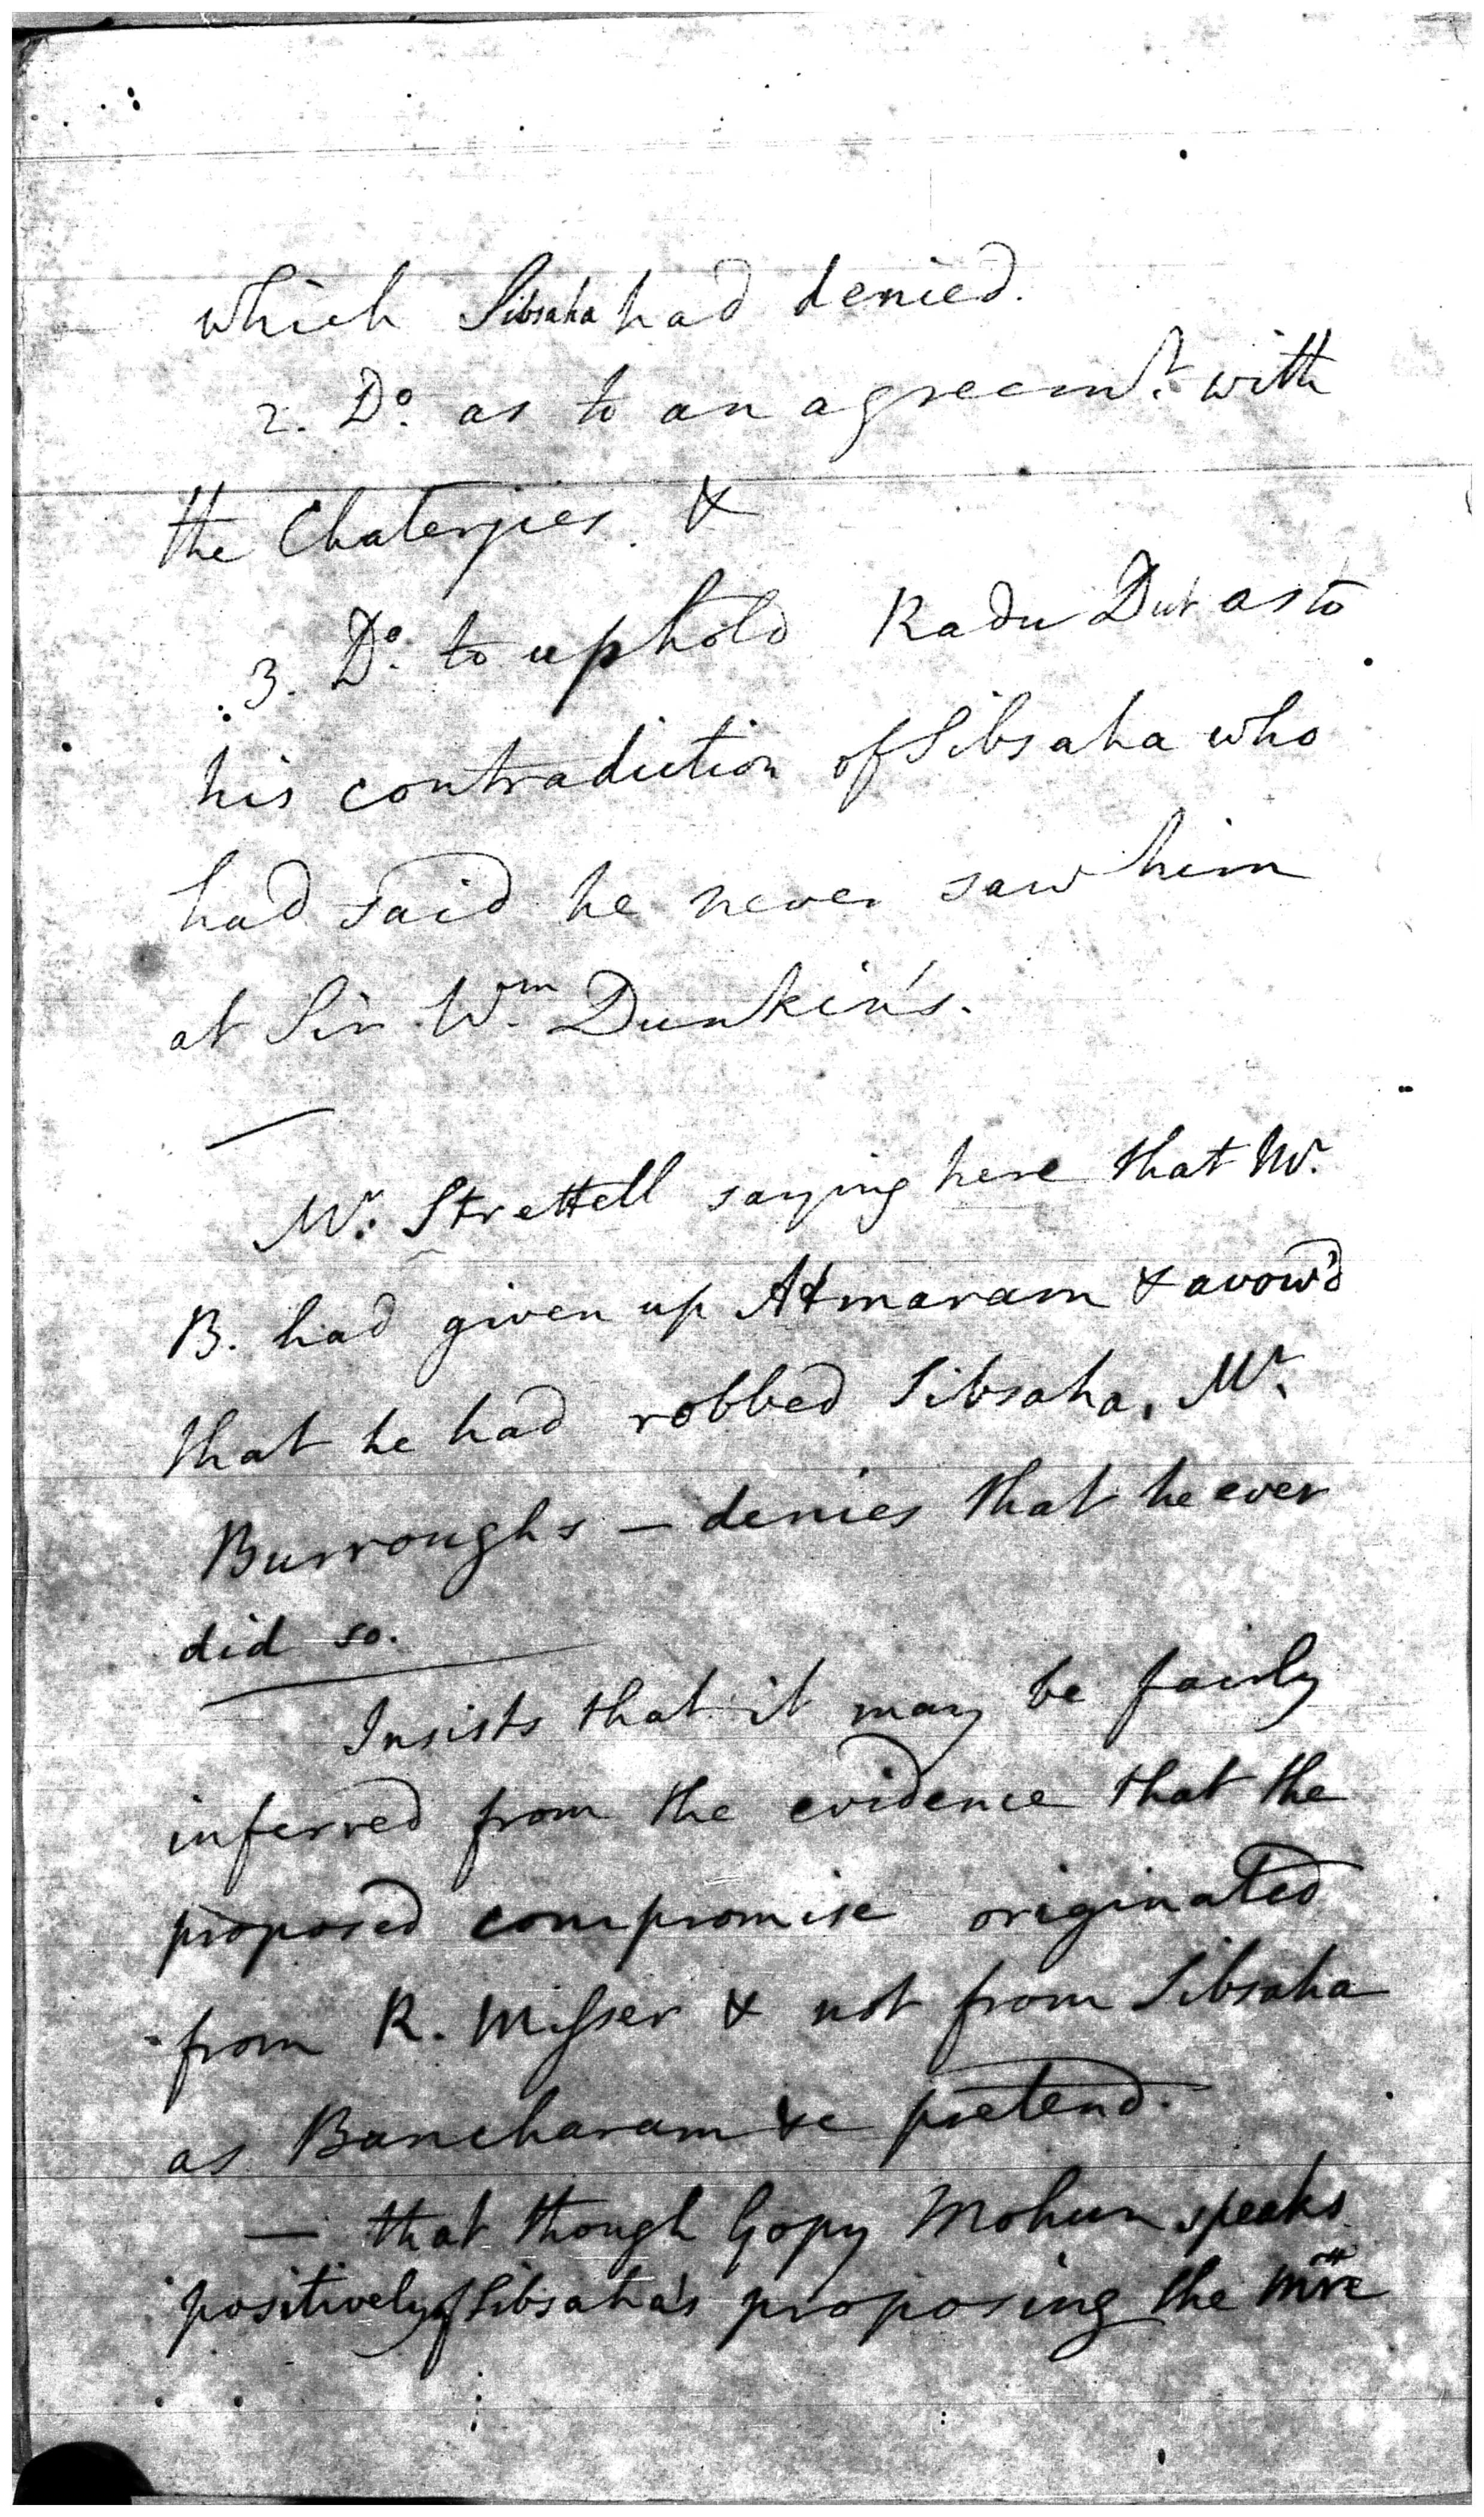 which Sibsaha had denied.
2. Do. as to an agreemt. with
the Chaterjies. &
3. Do. to uphold Radu Dut as to
his contradiction of Sibsaha who
had said he never saw him
at Sir Wm. Dunkin's.
—
Mr. Strettell saying here that Mr.
B. had given up Atmaram & avow'd
that he had robbed Sibsaha. Mr.
Burroughs – denies that he ever
did so.
Insists that it may be fairly
inferred from the evidence that the
proposed compromise originated
from R. Misser & not from Sibsaha
as Bancharam &c pretend.
— that though Gopy Mohun speaks
positively of Sibsaha's proposing the